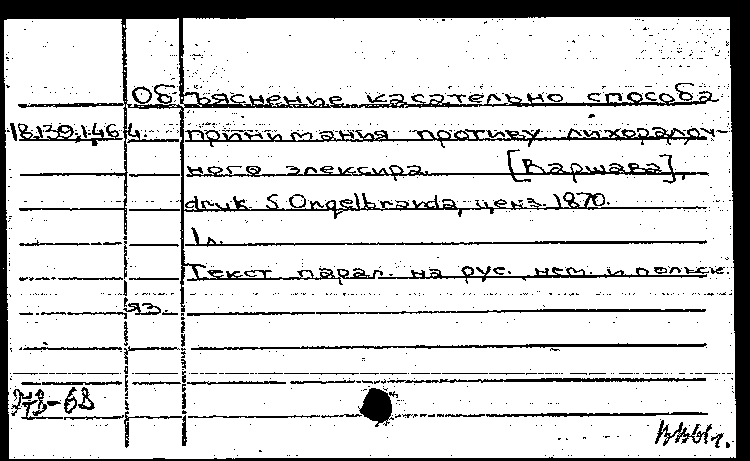 Объяснение касательно способа
18.130.1.464. принимания противу лихорадоч-
ного элексира. [Варшава],
druk S. Orgelbranda, ценз. 1870.
1 л.
Текст парал. на рус. нем. и польск.
яз.